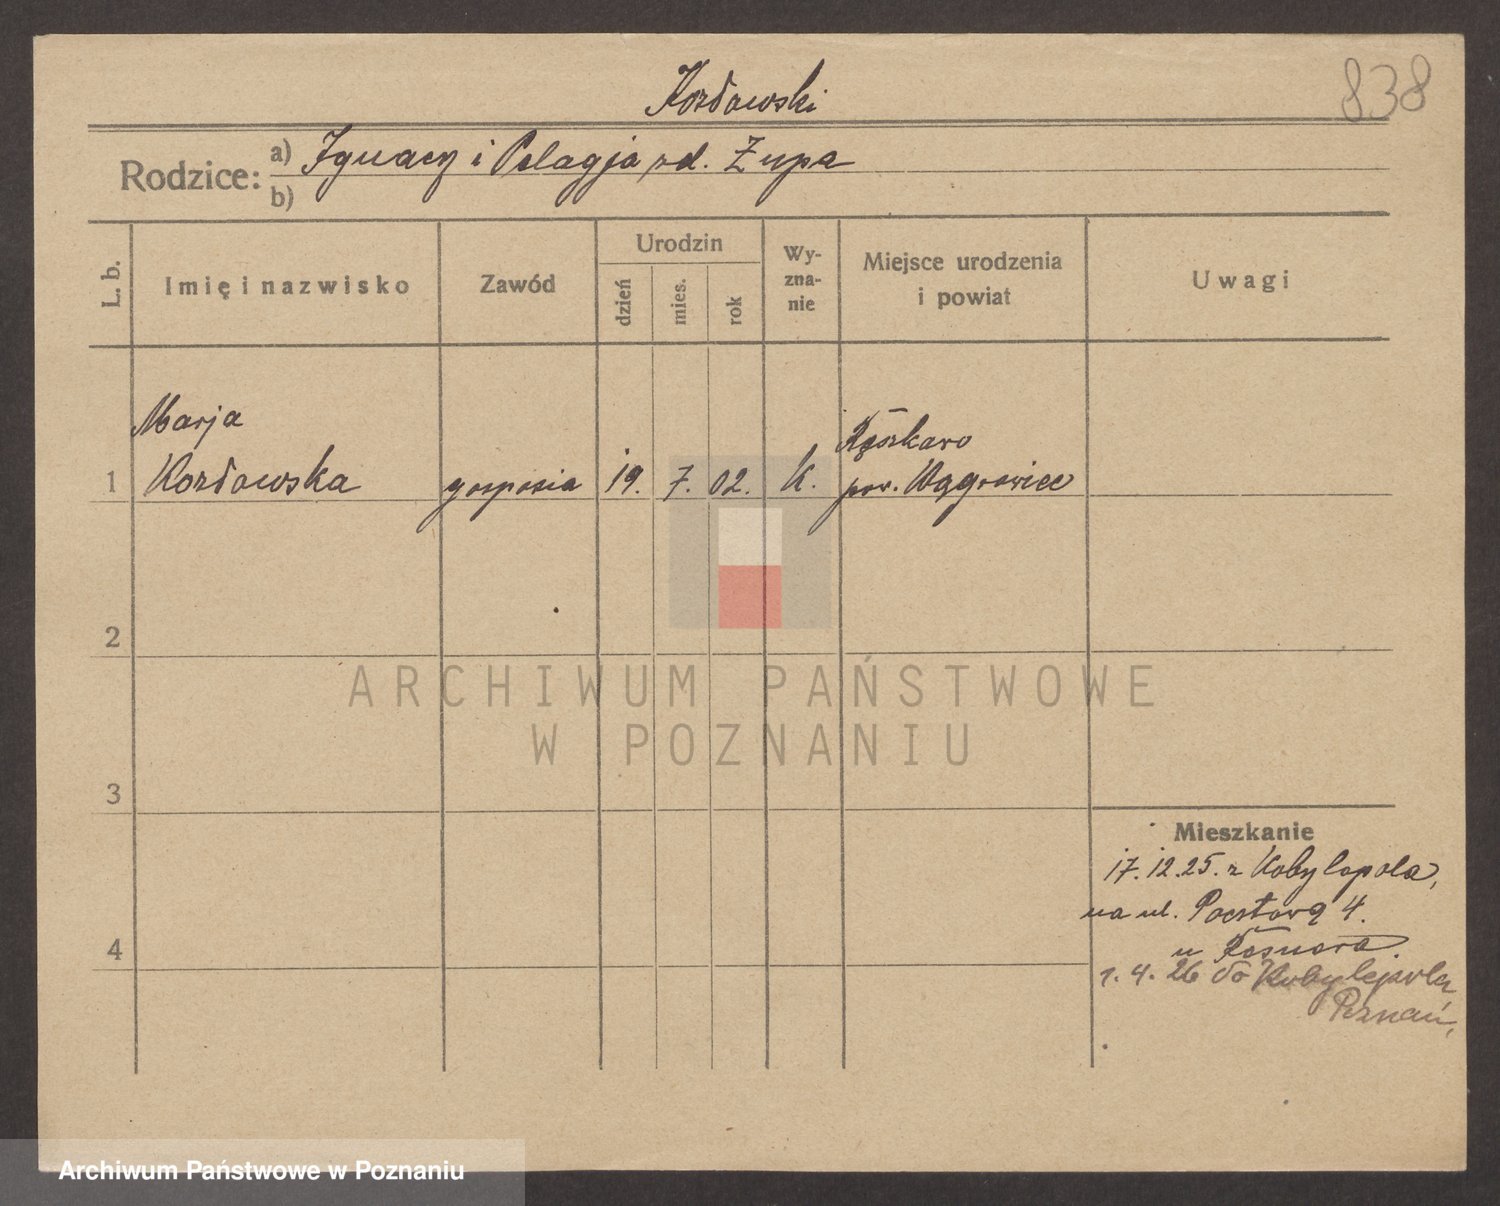 Kozłowski
838
Rodzice: a) Ignacy i Pelagja zd. Zupa
b)
L. b.
Imię i nazwisko
Zawód
Urodzin
dzień
mies.
rok
Wy-
zna-
nie
Miejsce urodzenia
i powiat
Uwagi
Marja
1 Kozłowska gosposia 19. 7. 02. k.
pow. Wągrowiec
2
3
4
ARCHIWUM PAŃSTWOWE
W POZNANIU
Mieszkanie
17.12.25. z Kobylopola,
na ul. Pocztową 4.
u
1. 4. 26 do
Poznań,
Archiwum Państwowe w Poznaniu